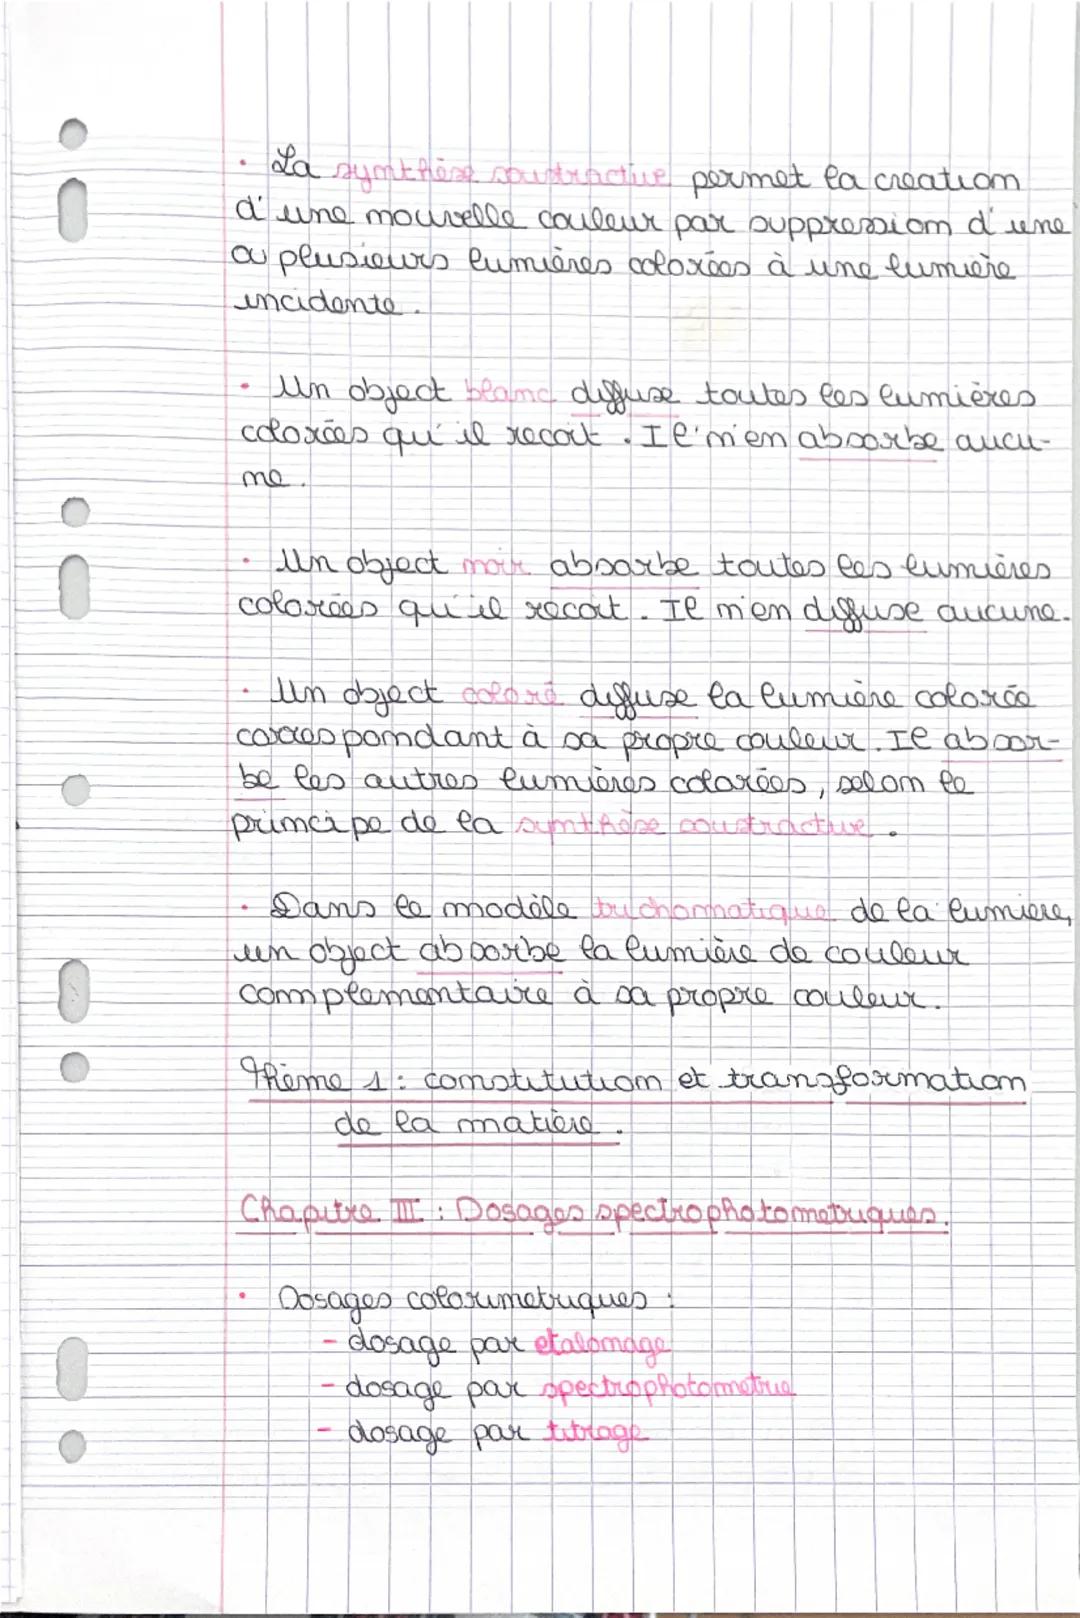 · La synthèse soustractive permet la creation
d'une nouvelle couleur par suppression d'une
ou plusieurs lumières colorées à une lumière
incidente.
· Un object blanc diffuse toutes les lumières
colorées qu'il recoit. Il n'en absorbe aucu-
ne.
· Un object noir absorbe toutes les lumières
colorées qu'il recoit. Il n'en diffuse aucune.
· Un object coloré diffuse la lumière colorée
correspondant à sa propre couleur. Il absor-
be les autres lumières colorées, selon le
principe de la synthèse soustractive.
· Dans le modèle trichomatique de la lumiere,
un object absorbe la lumière de couleur
complementaire à sa propre couleur.
Thème 1 : constitution et transformation
de la matière.
Chapitre III : Dosages spectrophotometriques.
· Dosages colorimetriques :
- dosage par etalonage
- dosage par spectrophotometrie
- dosage par titrage